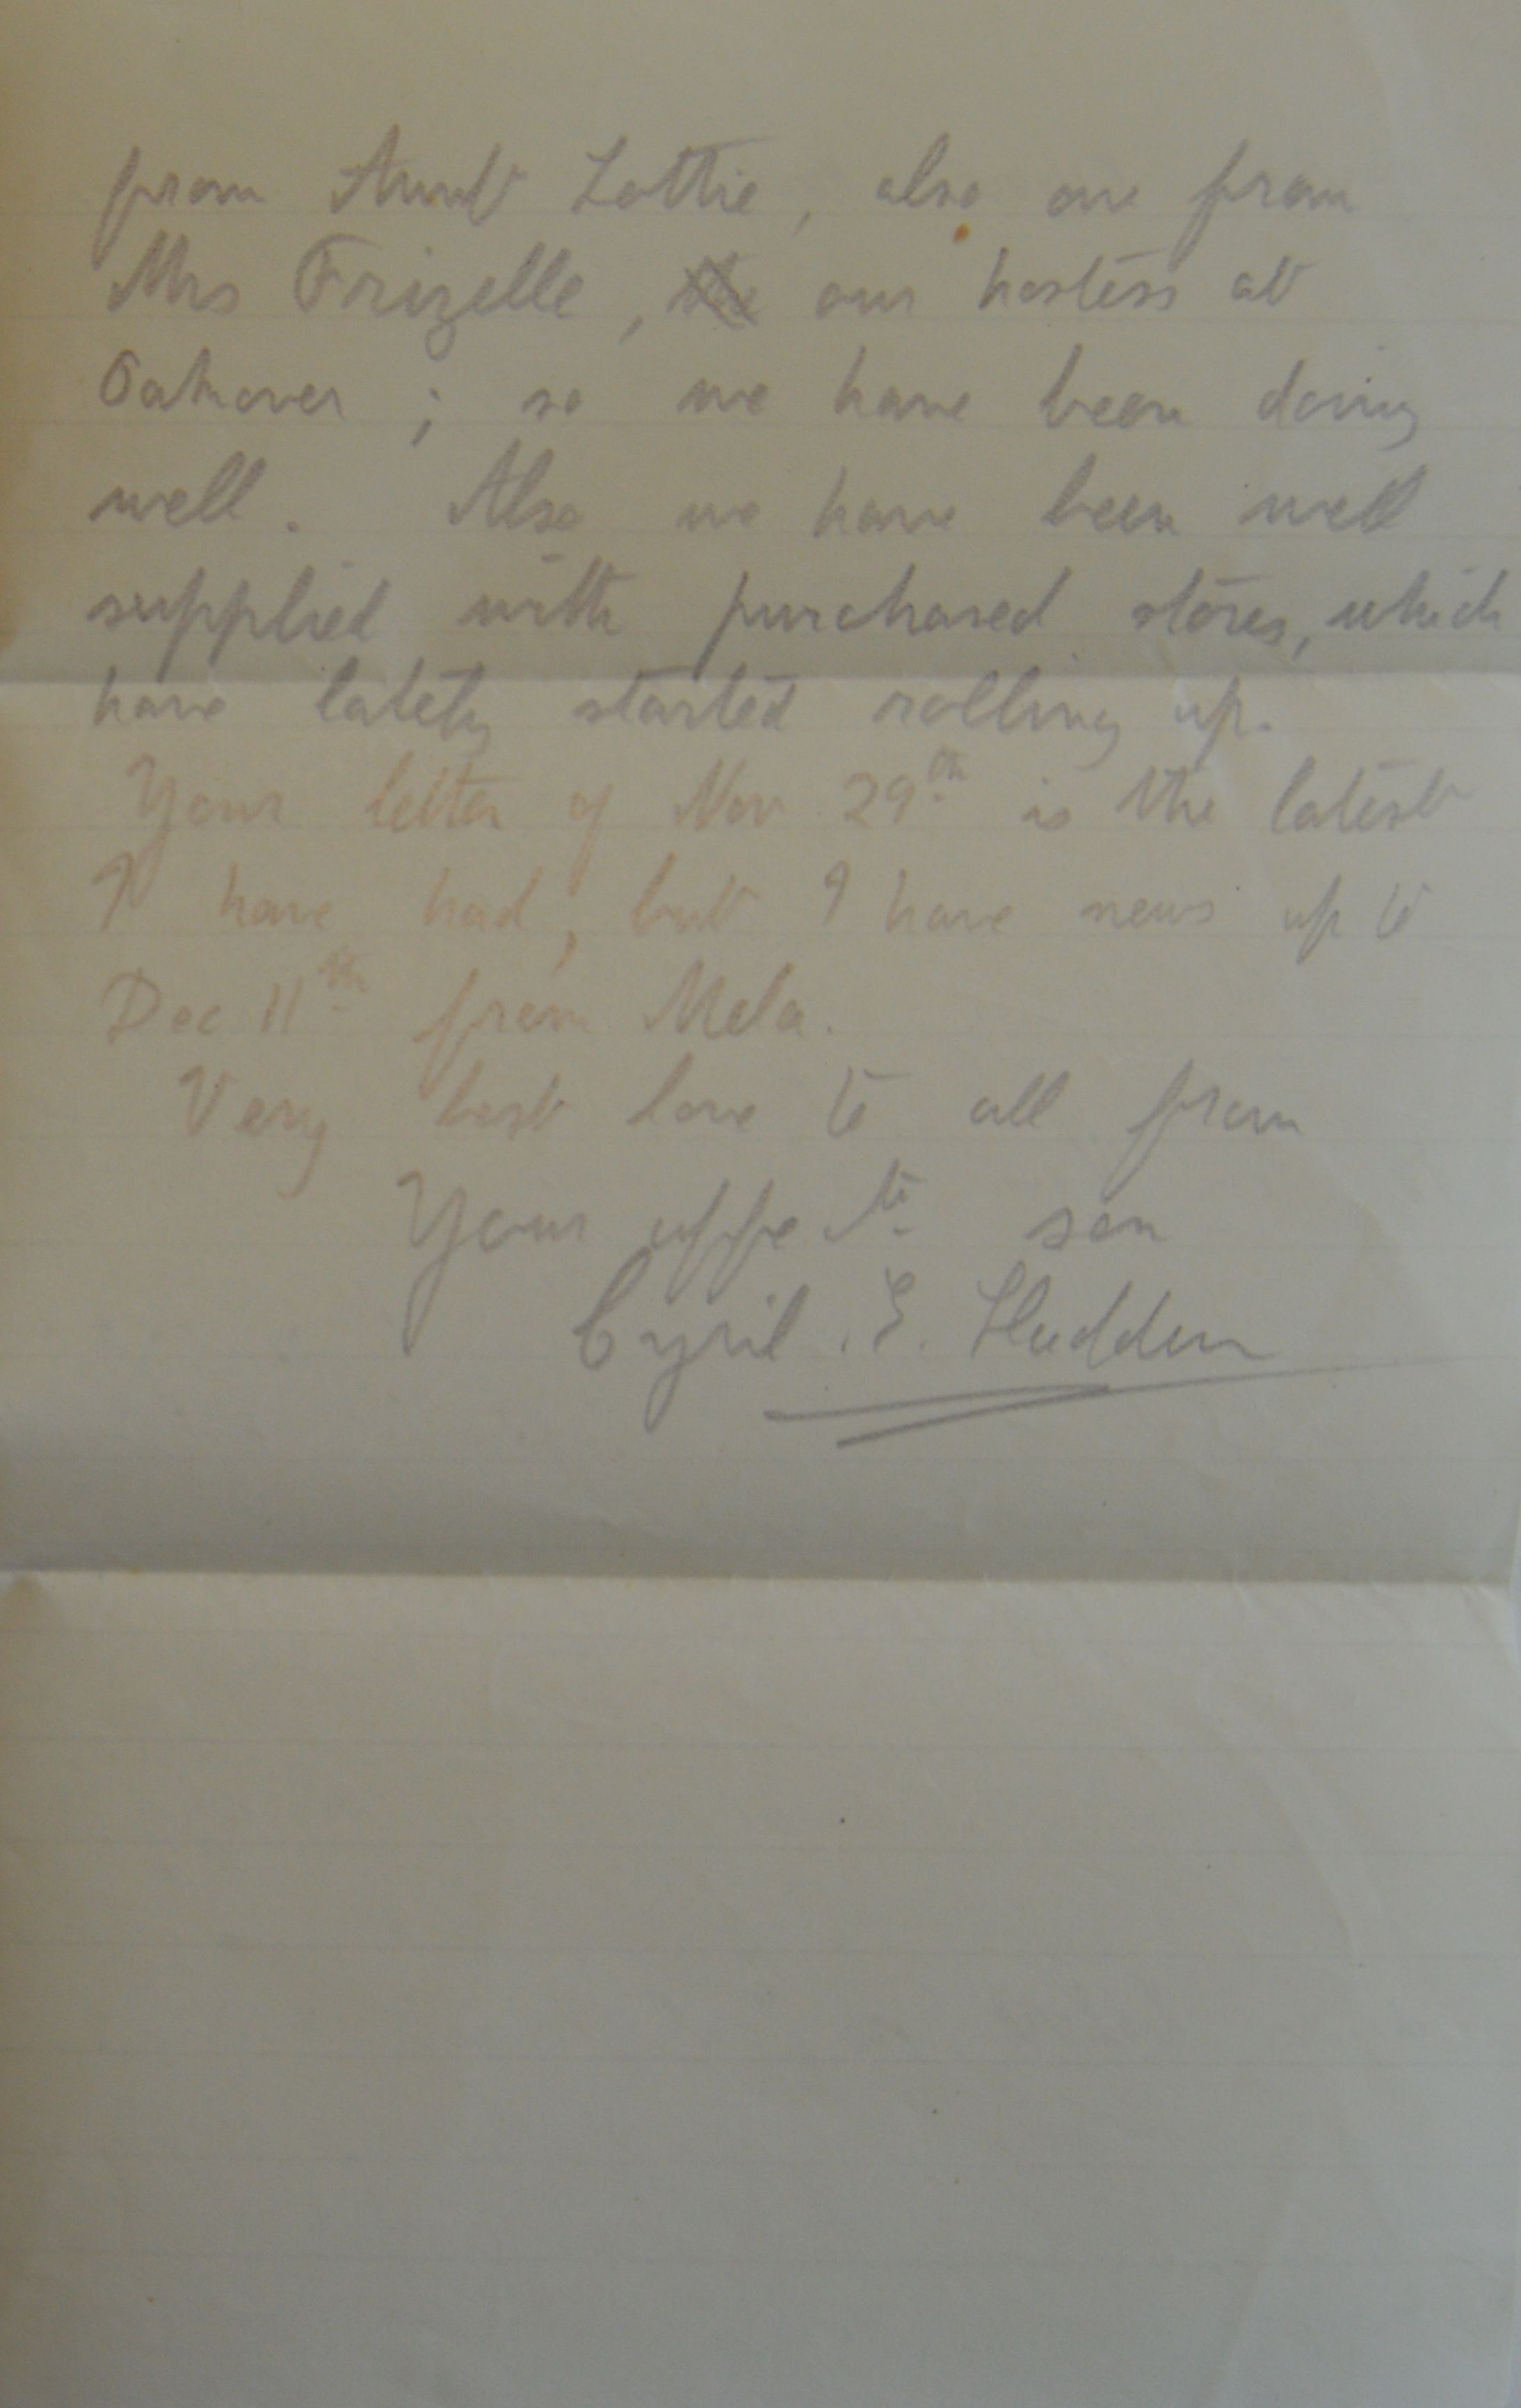 from Aunt Lottie, also one from
Mrs Frizelle, our hostess at
Oakover; so we have been doing
well. Also we have been well
supplied with purchased stores, which
have lately started rolling up.
Your letter of Nov 29th is the latest
I have had, but I have news up to
Dec 11th from Mela.
Very best love to all from
Your affec te son
Cyril. E. Hadden